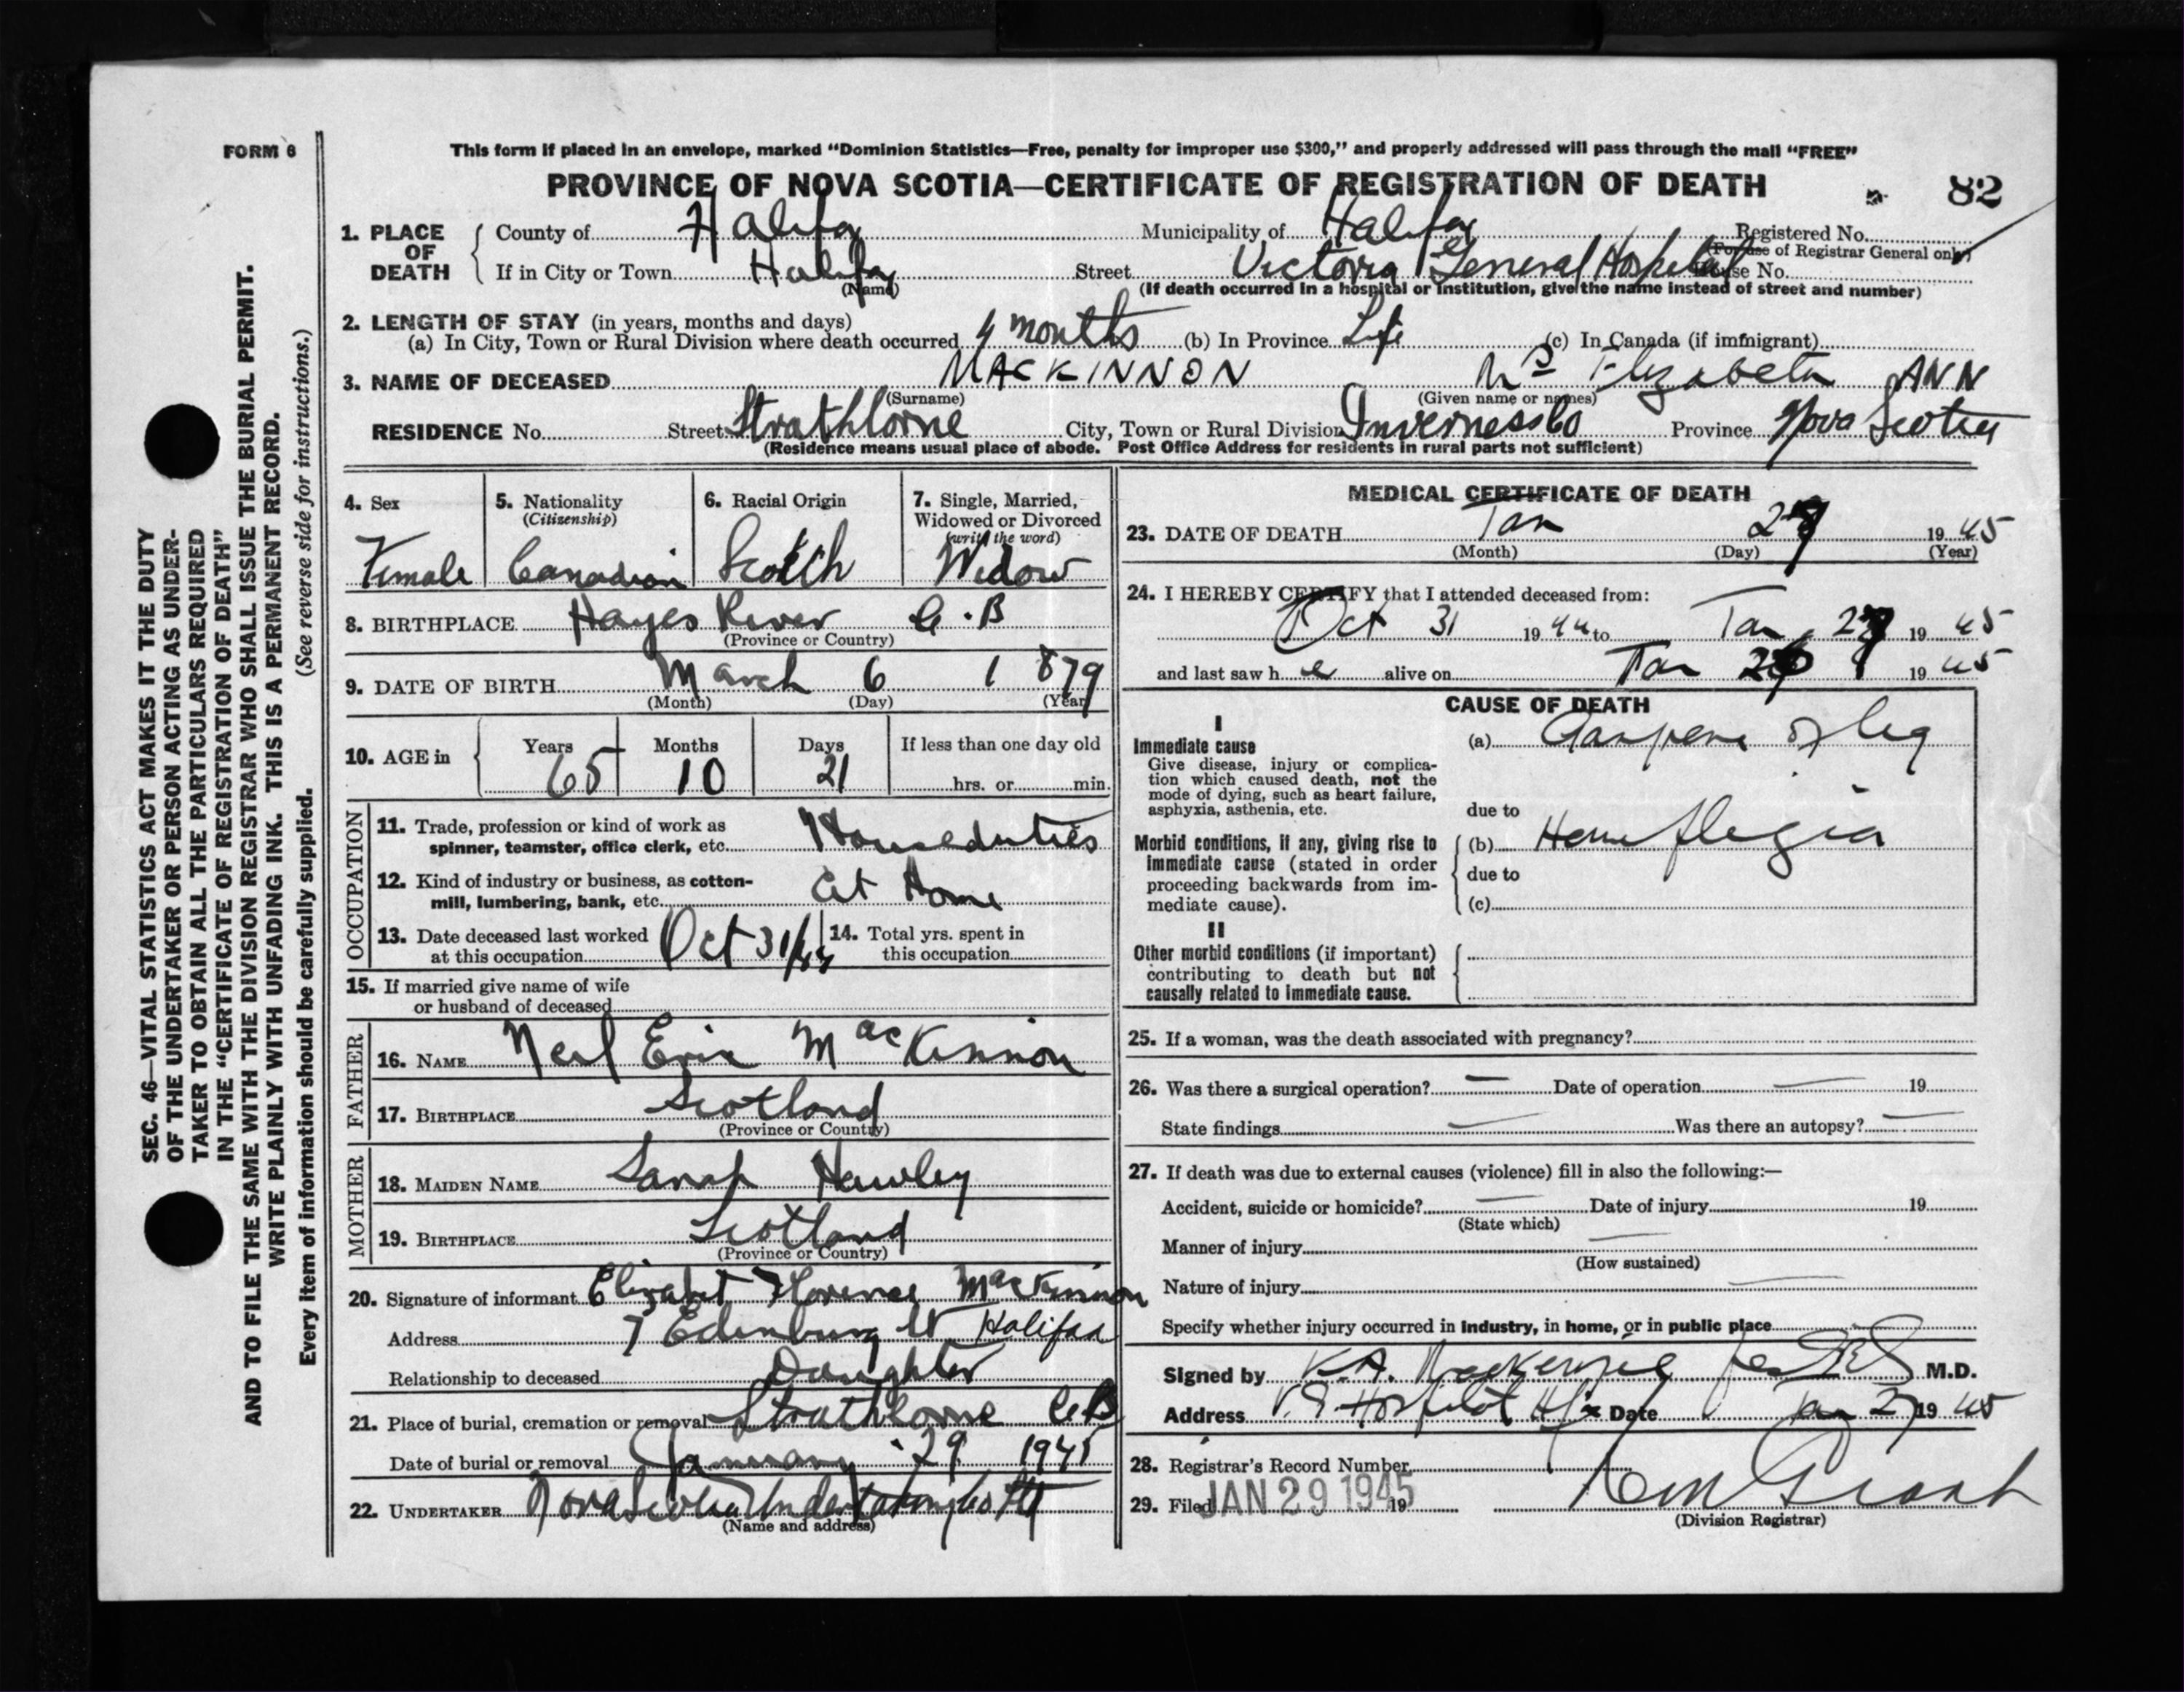 FORM 6
This form if placed in an envelope, marked “Dominion Statistics—Free, penalty for improper use $300,” and properly addressed will pass through the mail “FREE”
PROVINCE OF NOVA SCOTIA—CERTIFICATE OF REGISTRATION OF DEATH
82
1. PLACE OF DEATH
County of Halifax Municipality of Halifax Registered No.
(For use of Registrar General only)
If in City or Town Halifax Street Victoria General Hospital House No.
(Name) (If death occurred in a hospital or institution, give the name instead of street and number)
2. LENGTH OF STAY (in years, months and days)
(a) In City, Town or Rural Division where death occurred 4 months (b) In Province Life (c) In Canada (if immigrant)
3. NAME OF DECEASED MACKINNON Mrs Elizabeth ANN
(Surname) (Given name or names)
RESIDENCE No. Street Strathlorne City, Town or Rural Division Inverness Co Province Nova Scotia
(Residence means usual place of abode. Post Office Address for residents in rural parts not sufficient)
4. Sex Female
5. Nationality (Citizenship) Canadian
6. Racial Origin Scotch
7. Single, Married, Widowed or Divorced (write the word) Widow
8. BIRTHPLACE Hayes River C.B
(Province or Country)
9. DATE OF BIRTH March 6 1879
(Month) (Day) (Year)
10. AGE in Years 65 Months 10 Days 21 If less than one day old
hrs. or min.
OCCUPATION
11. Trade, profession or kind of work as
spinner, teamster, office clerk, etc. Houseduties
12. Kind of industry or business, as cotton-
mill, lumbering, bank, etc. At Home
13. Date deceased last worked
at this occupation Oct 31/44
14. Total yrs. spent in
this occupation
15. If married give name of wife
or husband of deceased
FATHER
16. NAME Neil Eric MacKinnon
17. BIRTHPLACE Scotland
(Province or Country)
MOTHER
18. MAIDEN NAME Sarah Hawley
19. BIRTHPLACE Scotland
(Province or Country)
20. Signature of informant Elizabet Florence MacKinnon
Address 7 Edinburg St Halifax
Relationship to deceased Daughter
21. Place of burial, cremation or removal Strathlorne C.B
Date of burial or removal January 29 1945
22. UNDERTAKER Nova Scotia Undertaking Co
(Name and address)
MEDICAL CERTIFICATE OF DEATH
23. DATE OF DEATH Jan 27 1945
(Month) (Day) (Year)
24. I HEREBY CERTIFY that I attended deceased from:
Oct 31 1944 to Jan 27 1945
and last saw h er alive on Jan 1945
CAUSE OF DEATH
I
Immediate cause
Give disease, injury or complica-
tion which caused death, not the
mode of dying, such as heart failure,
asphyxia, asthenia, etc.
(a) Gangrene of leg
due to
Morbid conditions, if any, giving rise to
immediate cause (stated in order
proceeding backwards from im-
mediate cause).
(b) Hemiplegia
due to
(c)
II
Other morbid conditions (if important)
contributing to death but not
causally related to immediate cause.
25. If a woman, was the death associated with pregnancy?
26. Was there a surgical operation? — Date of operation — 19
State findings — Was there an autopsy? —
27. If death was due to external causes (violence) fill in also the following:—
Accident, suicide or homicide? — Date of injury 19
(State which)
Manner of injury —
(How sustained)
Nature of injury —
Specify whether injury occurred in industry, in home, or in public place
Signed by K.A. MacKenzie M.D.
Address V.G. Hospital Hfx Date Jan 27 1945
28. Registrar's Record Number
29. Filed JAN 29 1945 19
(Division Registrar)
SEC. 46—VITAL STATISTICS ACT MAKES IT THE DUTY
OF THE UNDERTAKER OR PERSON ACTING AS UNDER-
TAKER TO OBTAIN ALL THE PARTICULARS REQUIRED
IN THE “CERTIFICATE OF REGISTRATION OF DEATH”
AND TO FILE THE SAME WITH THE DIVISION REGISTRAR WHO SHALL ISSUE THE BURIAL PERMIT.
WRITE PLAINLY WITH UNFADING INK. THIS IS A PERMANENT RECORD.
Every item of information should be carefully supplied. (See reverse side for instructions.)